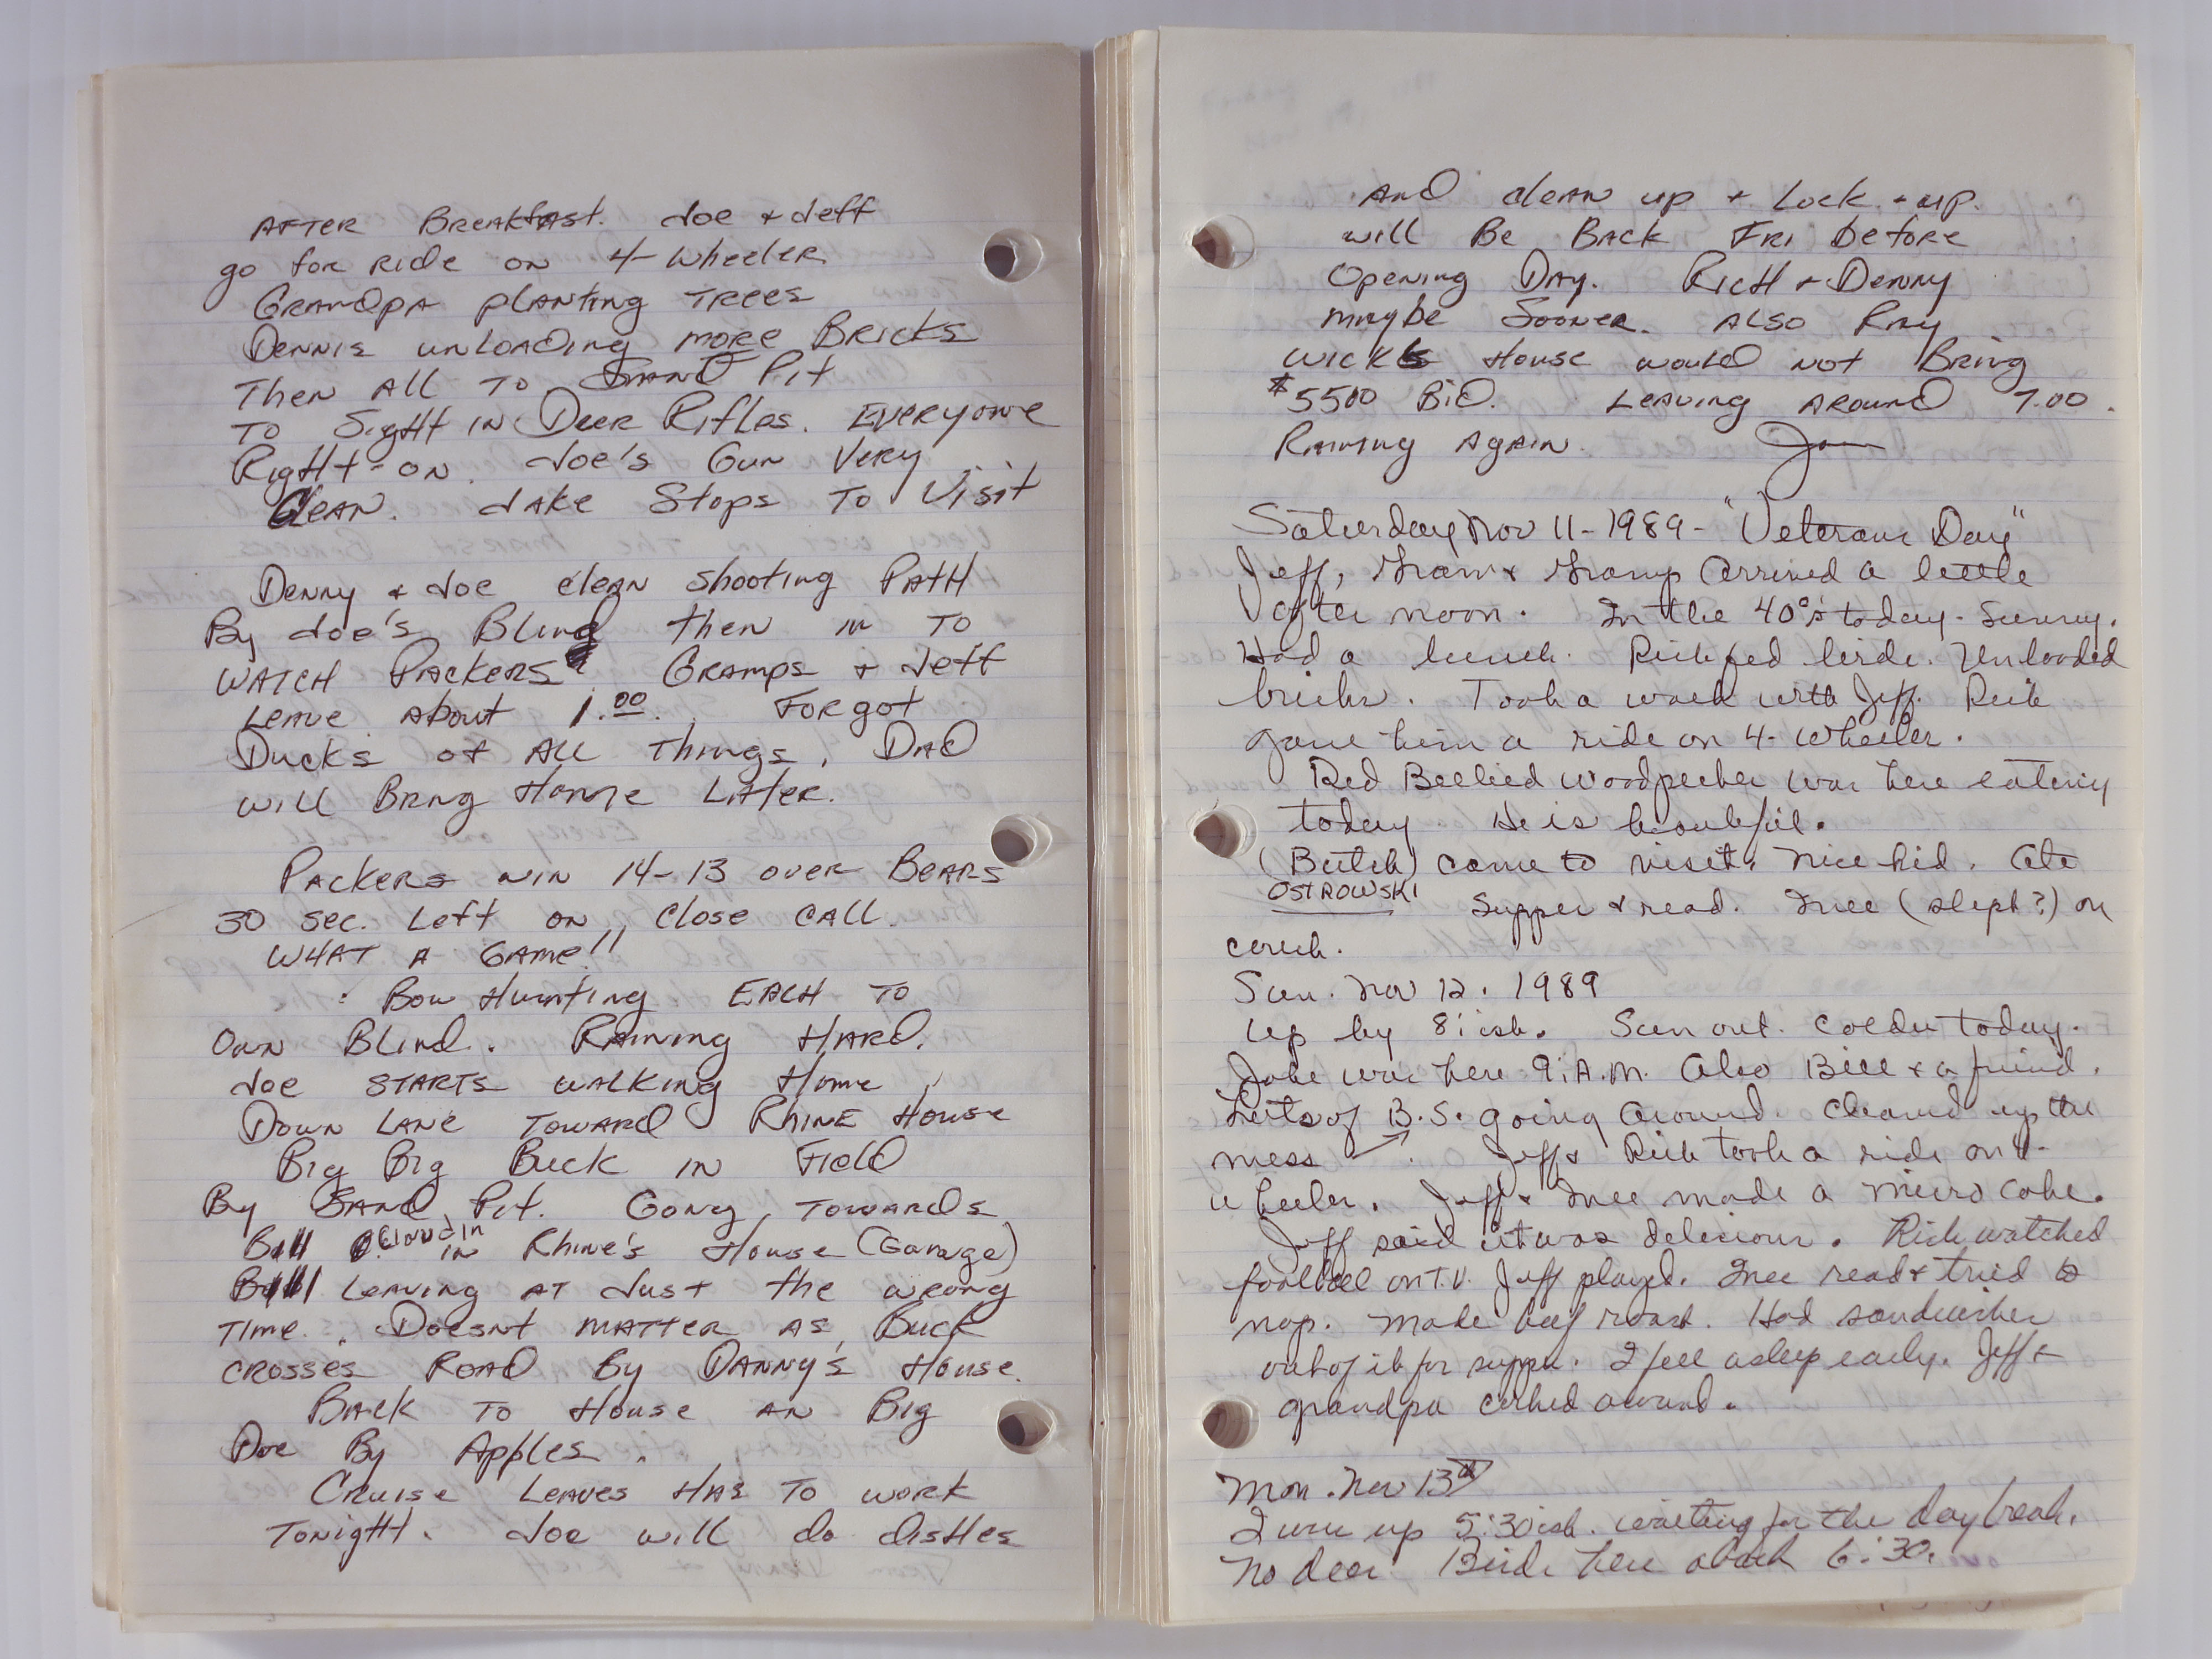 AFTER BREAKFAST. Joe + Jeff
go for Ride on 4-Wheeler
GRANDPA PLANTING TREES
Dennis unloading more Bricks
Then ALL TO SAND Pit
TO Sight in Deer Rifles. EVERYONE
Right-on. Joe's Gun Very
Clean. Jake Stops To Visit
Denny + Joe clean shooting PATH
By Joe's Blind then in TO
WATCH PACKERS. Gramps + Jeff
Leave About 1.00. Forgot
Ducks of ALL Things, DAD
will Bring Home LATER.
PACKERS win 14-13 over BEARS
30 sec. Left on close call.
WHAT A GAME!!
: Bow Hunting. EACH TO
Own Blind. Raining HARD.
Joe STARTS WALKING Home
Down LANE TOWARD RHINE House
Big Big Buck in Field
By SAND Pit. Gong, TOWARDS
Bill Cloud in in Rhine's House (Garage)
Bill Leaving AT Just the wrong
Time. Doesnt matter as Buck
crosses ROAD By DANNY'S House.
BACK TO House AN Big
Doe By Apples.
Cruise Leaves HAS TO work
Tonight. Joe will do dishes
And clean up + Lock + up.
will Be BACK FRI before
Opening DAY. RICH + Denny
maybe Sooner. ALSO RAY
WICKS House would not Bring
$5500 Bid. Leaving Around 7.00.
Raining Again. Joe
Saturday Nov 11-1989- "Veterans Day"
Jeff, Gram + Gramp arrived a little
after noon. In the 40°'s today. Sunny.
Had a lunch. Rich fed birds. Unloaded
bricks. Took a walk with Jeff. Rich
gave him a ride on 4-Wheeler.
Red Bellied Woodpecker was here eating
today. He is beautiful.
(Butch) came to visit. Nice kid. Ate
OSTROWSKI supper & read. Inee (slept?) on
couch.
Sun. Nov 12. 1989
Up by 8:ish. Sun out. Colder today.
Jake was here 9:A.M. Also Bill & a friend.
Lots of B.S. going around. Cleaned up the
mess. Jeff & Rich took a ride on 4-
wheeler. Jeff & Inee made a micro cake.
Jeff said it was delicious. Rich watched
football on T.V. Jeff played. Inee read & tried to
nap. Made beef roast. Had sandwiches
out of it for supper. I fell asleep early. Jeff &
grandpa corked around.
Mon. Nov 13th
I was up 5:30ish. Waiting for the daybreak.
No deer. Birds here about 6:30.